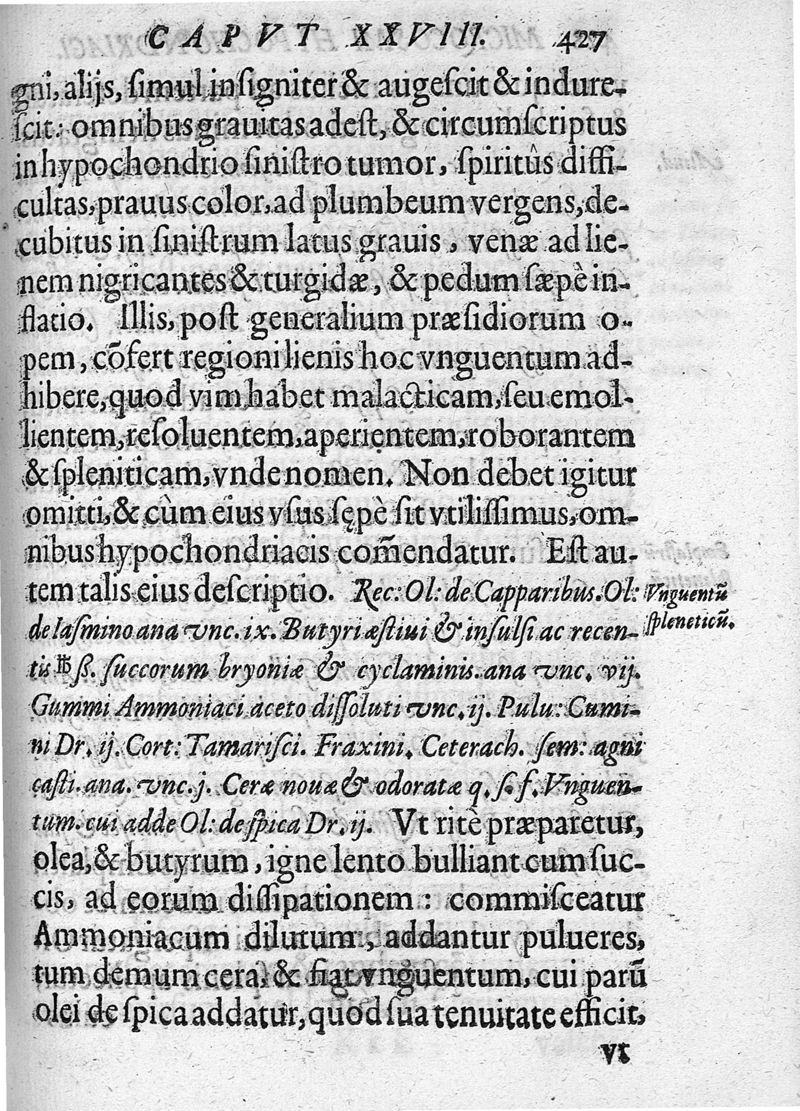 CAPVT XXVIII. 427
gni, alijs, ſimul inſigniter & augeſcit & indure-
ſcit: omnibus grauitas adeſt, & circumſcriptus
in hypochondrio ſiniſtro tumor, ſpiritûs diffi-
cultas, prauus color, ad plumbeum vergens, de-
cubitus in ſiniſtrum latus grauis, venæ ad lie-
nem nigricantes & turgidæ, & pedum ſæpè in-
flatio. Illis, poſt generalium præſidiorum o-
pem, cōfert regioni lienis hoc vnguentum ad-
hibere, quod vim habet malacticam, ſeu emol-
lientem, reſoluentem, aperientem, roborantem
& ſpleniticam, vnde nomen. Non debet igitur
omitti, & cùm eius vſus ſępè ſit vtiliſſimus, om-
nibus hypochondriacis com̄endatur. Eſt au-
tem talis eius deſcriptio. Rec: Ol: de Capparibus. Ol:
de Iaſmino ana vnc. ix. Butyri æſtiui & inſulſi ac recen-
tis ℔ ß. ſuccorum bryoniæ & cyclaminis. ana vnc. vij.
Gummi Ammoniaci aceto diſſoluti vnc. ij. Pulu: Cumi-
ni Dr. ij. Cort: Tamariſci. Fraxini. Ceterach. ſem: agni
caſti. ana. vnc. j. Ceræ nouæ & odoratæ q. ſ. f. Vnguen-
tum. cui adde Ol: de ſpica Dr. ij. Vt ritè præparetur,
olea, & butyrum, igne lento bulliant cum ſuc-
cis, ad eorum diſſipationem: commiſceatur
Ammoniacum dilutum, addantur pulueres,
tum demum cera, & fiat vnguentum, cui parū
olei de ſpica addatur, quod ſua tenuitate efficit,
vt
Vnguentū
ſpleneticū.